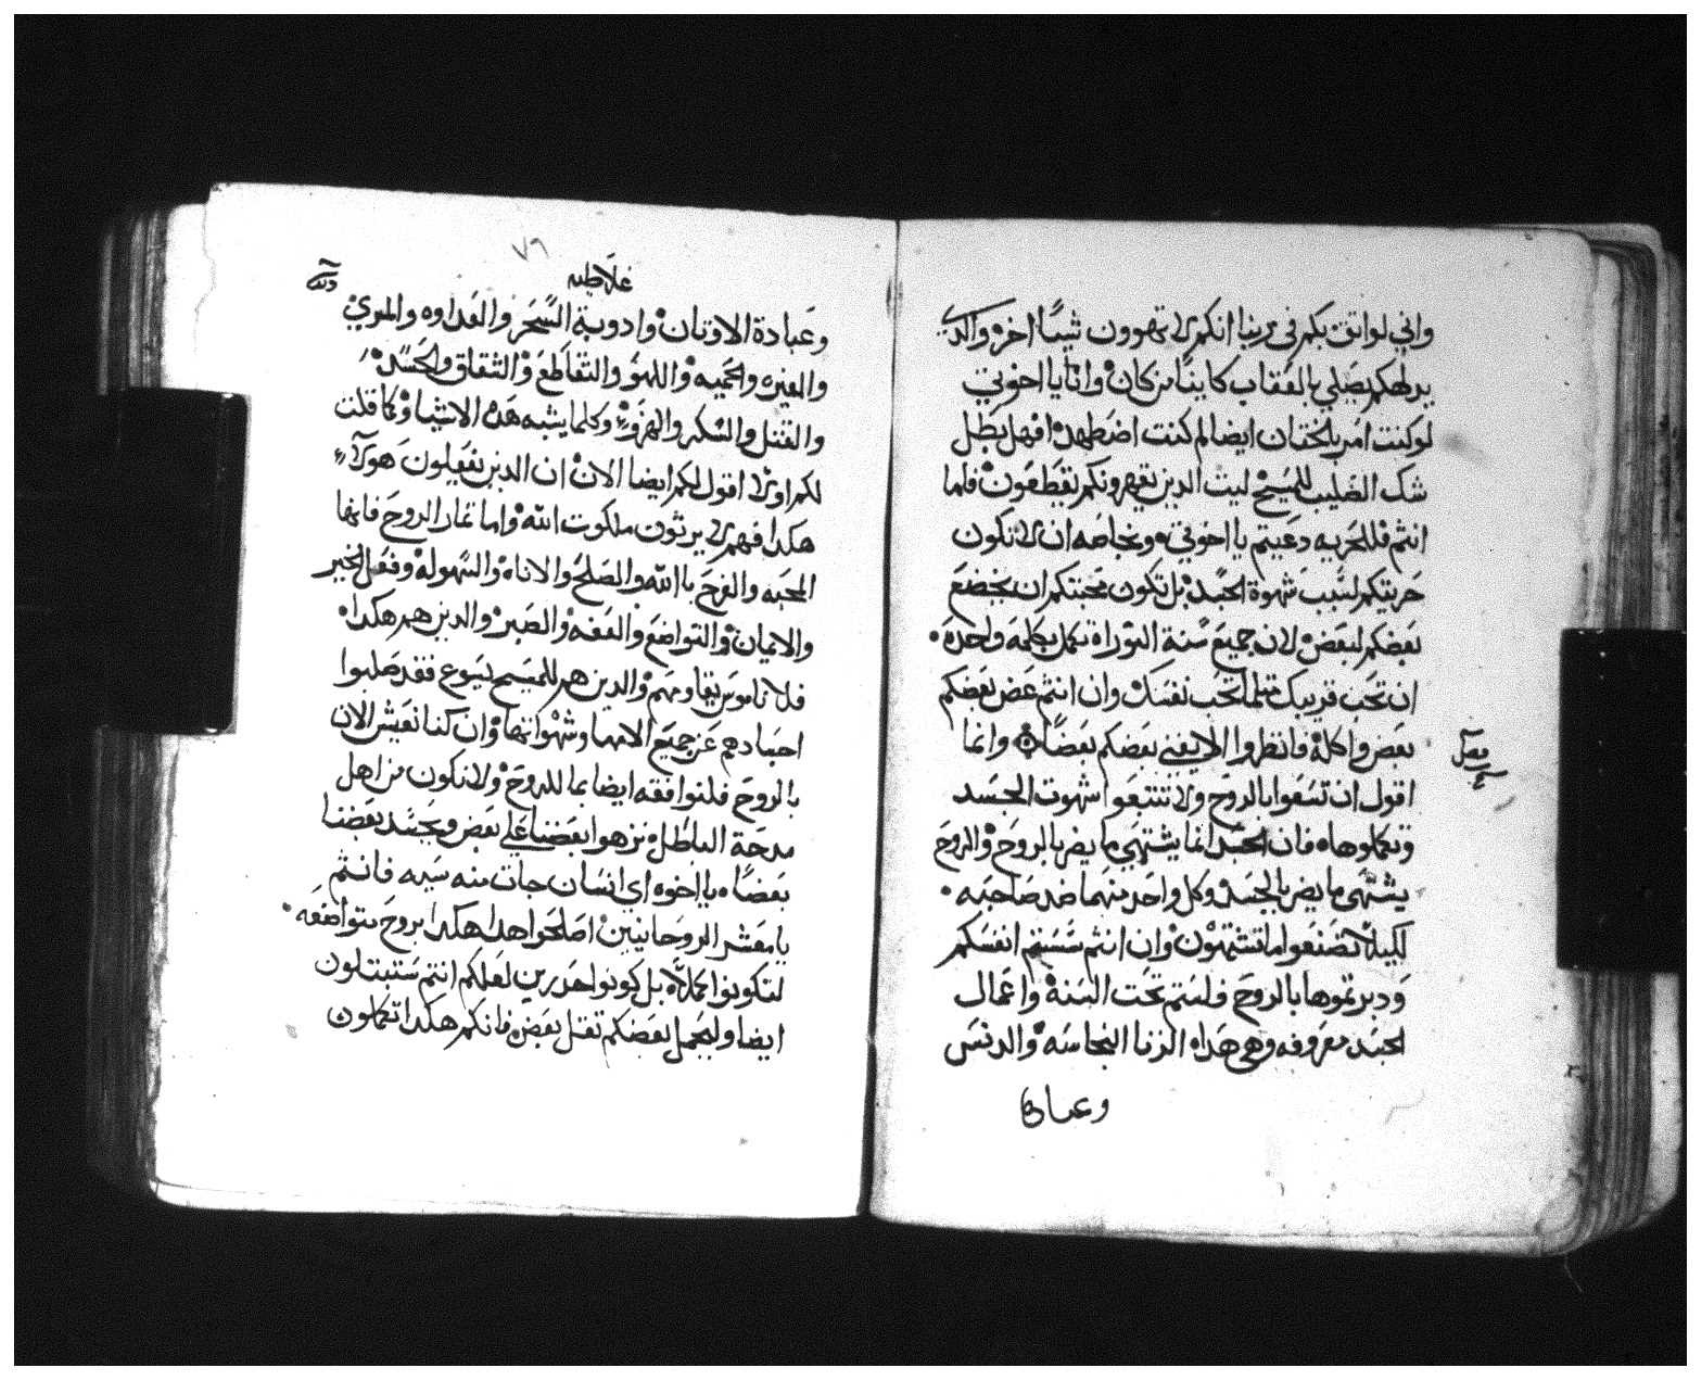 واني لواثق بكم في ربنا انكم لا تهوون شيًا اخر والذي
يدلهكم يصلي بالعقاب كاينًا من كان وانا يا اخوتي
لوكنت امر بالختان ايضا لم كنت اضطهد افهل بطل
شك الصليب للمسيح ليث الدين يقهرونكم يقطعون فلما
انتم فللحريه دعيتم يا اخوتي وبخاصه ان لا تكون
حريتكم لسبب شهوة الجسد بل تكون محبتكم ان يخضع
بعضكم لبعض لان جميع سنة التوراة تكمل بكلمة واحده
ان تحب قريبك مثلما تحب نفسك وان انتم عض بعضكم
بعض واكله فانظروا الا يفني بعضكم بعضًا وانما
فصل
اقول ان تسعوا بالروح ولا تتبعوا شهوت الجسد
وتعملوها فان الجسد انما يشتهي ما يضر بالروح والروح
يشتهي ما يضر بالجسد وكل واحد منهما ضد صاحبه
لكيلا تصنعوا ما تشتهون وان انتم سستم انفسكم
ودبرتموها بالروح فلستم تحت السنه واعمال
الجسد معروفه وهي هذه الزنا النجاسه والدنس
وعبادة
٧٩
غلاطيه
وعبادة الاوتان وادوية السحر والعداوه والمري
والغيره والحميه واللهو والتقاطع والشقاق والحسد
والقتل والسكر والهزو وكلما يشبه هده الاشيا وكما قلت
لكم اولا اقول لكم ايضا الان ان الدين يفعلون هولاء
هكدا فهم لا يرثون ملكوت الله واما تمار الروح فانها
المحبه والفرح باالله والصلح والاناه والسهوله وفعل الخير
والايمان والتواضع والعفه والصبر والدين هم هكدا
فلا ناموس يقاومهم والدين هم للمسيح يسوع فقد صلبوا
اجسادهم عن جميع الامها وشهواتها وان كنا نعيش الان
بالروح فلنوافقه ايضا بما للروح ولا نكون من اهل
مدحة الباطل نزهوا بعضنا علي بعض ويحسد بعضنا
بعضًا يا اخوه اي انسان جات منه سيه فانتم
يا معشر الروحانيين اصلحوا هدا هكدا بروح متواضعه
لتكونوا بل كونوا احدرين لعلكم انتم ستبتلون
ايضا وليحمل بعضكم تقل بعض فانكم هكدا تكملون